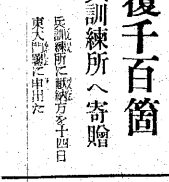 千百箇
訓練所へ寄贈
兵訓練所に献納方を十四日
東大門署に申出た